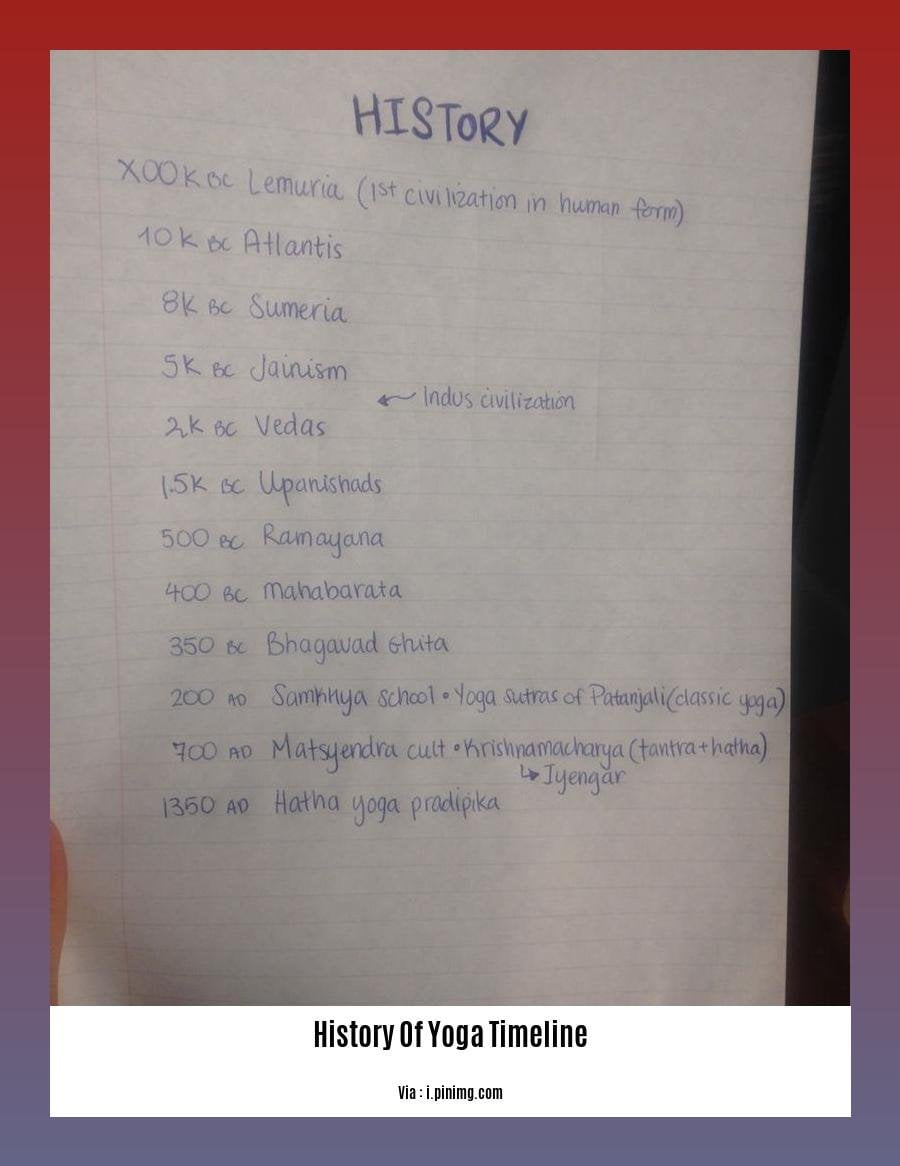 HISTORY
X00K BC Lemuria (1st civilization in human form)
10K BC Atlantis
8K BC Sumeria
5K BC Jainism
← Indus civilization
2K BC Vedas
1.5K BC Upanishads
500 BC Ramayana
400 BC Mahabarata
350 BC Bhagavad Ghita
200 AD Samkhya School • Yoga Sutras of Patanjali (classic yoga)
700 AD Matsyendra cult • Krishnamacharya (tantra+hatha)
↳ Iyengar
1350 AD Hatha yoga pradipika
History Of Yoga Timeline
Via : i.pinimg.com